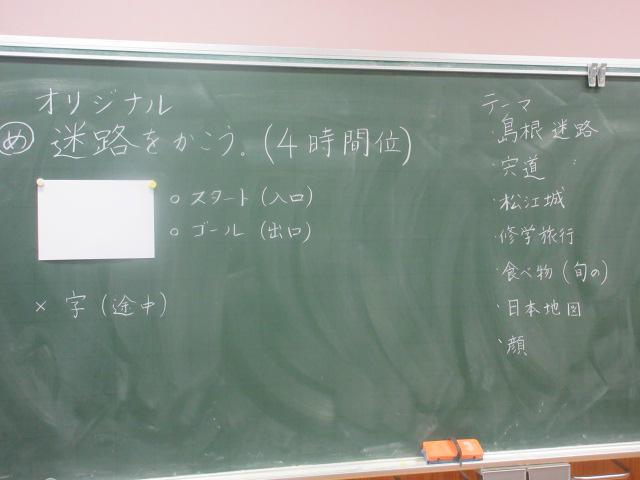 オリジナル
め 迷路をかこう。(4時間位)
○ スタート (入口)
○ ゴール (出口)
× 字 (途中)
テーマ
・島根 迷路
・宍道 〃
・松江城
・修学旅行
・食べ物 (旬の)
・日本地図
・顔